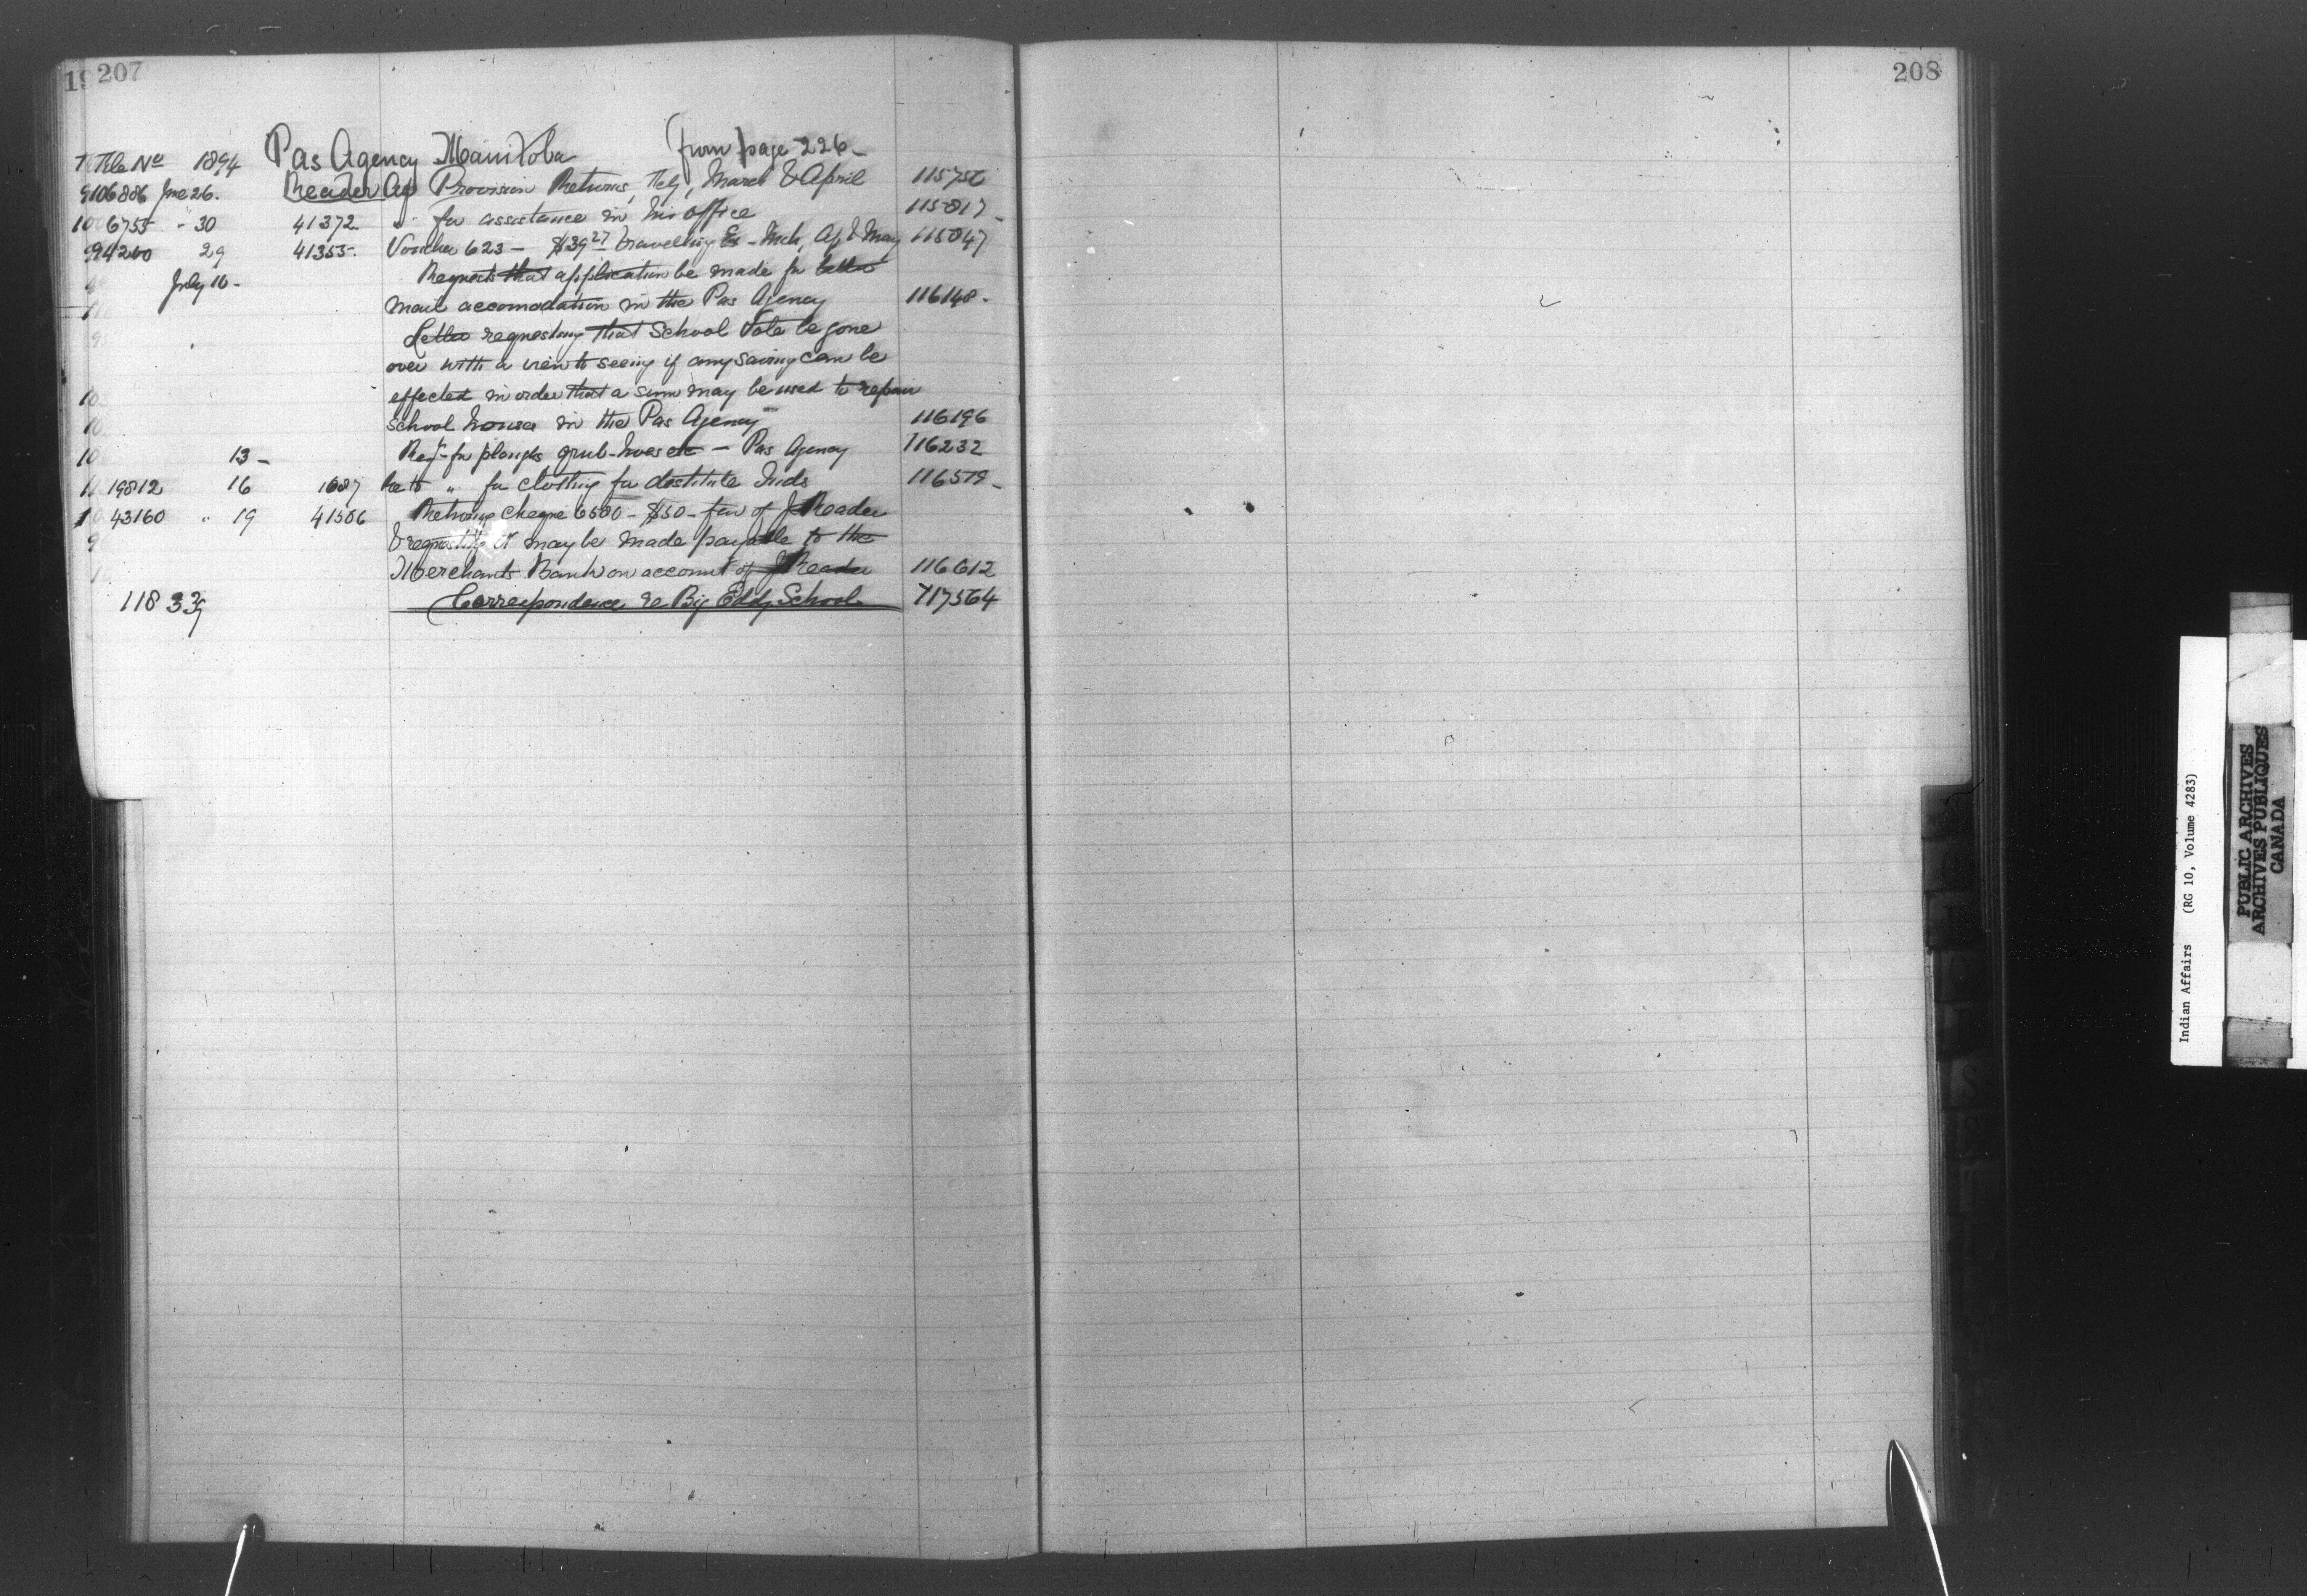 207
File No 1894 Pas Agency Manitoba (from page 226-
106886 June 26. Reader Ag Provision Returns, Feby, March & April 115756
6755 " 30 41372 " for assistance in his office 115817-
94200 29 41355- Voucher 623 - $39 27 travelling Ex - Mch, Ap & May 115847
July 10- Requests that application be made for better
mail accomodation in the Pas Agency 116148-
Letter requesting that School Vote be gone
over with a view to seeing if any saving can be
effected in order that a sum may be used to repair
School houses in the Pas Agency 116196
13- Reqn for ploughs grub-hoes etc - Pas Agency 116232
19812 16 1687 " for clothing for destitute Inds 116519-
43160 " 19 41506 Returning cheque 6500 - $50 - fav of J Reader
& requesting it may be made payable to the
Merchants Bank on account of J Reader 116612
118 339 Correspondence re Big Eddy School 117564
208
Indian Affairs (RG 10, Volume 4283)
PUBLIC ARCHIVES
ARCHIVES PUBLIQUES
CANADA